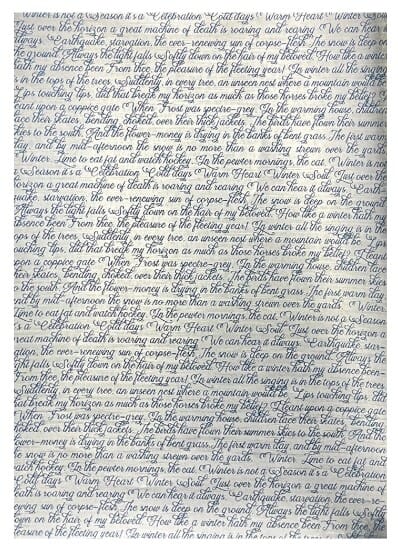 Winter is not a Season it's a Celebration Cold days Warm Heart Winter Soul
Just over the horizon a great machine of death is roaring and rearing We can hear it
always. Earthquake, starvation, the ever-renewing sun of corpse-flesh. The snow is deep on
the ground. Always the light falls Softly down on the hair of my beloved. How like a winter
hath my absence been From thee, the pleasure of the fleeting year! In winter all the singing
is in the tops of the trees. Suddenly, in every tree, an unseen nest where a mountain would be.
Lips touching lips, did that break my horizon as much as those horses broke my belief? I
leant upon a coppice gate When Frost was spectre-grey. In the warming house, children
lace their skates, bending, choked, over their thick jackets. The birds have flown their summer
skies to the south, And the flower-money is drying in the banks of bent grass. The first warm
day, and by mid-afternoon the snow is no more than a washing strewn over the yards.
Winter. Time to eat fat and watch hockey. In the pewter mornings, the cat, Winter is not
a Season it's a Celebration Cold days Warm Heart Winter Soul. Just over the
horizon a great machine of death is roaring and rearing We can hear it always. Earthq-
uake, starvation, the ever-renewing sun of corpse-flesh. The snow is deep on the ground.
Always the light falls Softly down on the hair of my beloved. How like a winter hath my
absence been From thee, the pleasure of the fleeting year! In winter all the singing is in the
tops of the trees. Suddenly, in every tree, an unseen nest where a mountain would be. Lips
touching lips, did that break my horizon as much as those horses broke my belief? I leant
upon a coppice gate When Frost was spectre-grey. In the warming house, children lace
their skates, bending, choked, over their thick jackets. The birds have flown their summer skies
to the south, And the flower-money is drying in the banks of bent grass. The first warm day,
and by mid-afternoon the snow is no more than a washing strewn over the yards. Winter.
Time to eat fat and watch hockey. In the pewter mornings, the cat, Winter is not a Season
it's a Celebration Cold days Warm Heart Winter Soul. Just over the horizon a
great machine of death is roaring and rearing We can hear it always. Earthquake, starv-
ation, the ever-renewing sun of corpse-flesh. The snow is deep on the ground. Always the
light falls Softly down on the hair of my beloved. How like a winter hath my absence been
From thee, the pleasure of the fleeting year! In winter all the singing is in the tops of the trees.
Suddenly, in every tree, an unseen nest where a mountain would be. Lips touching lips, did
that break my horizon as much as those horses broke my belief? I leant upon a coppice gate
When Frost was spectre-grey. In the warming house, children lace their skates, bending,
choked, over their thick jackets. The birds have flown their summer skies to the south, And the
flower-money is drying in the banks of bent grass. The first warm day, and by mid-afternoon
the snow is no more than a washing strewn over the yards. Winter. Time to eat fat and
watch hockey. In the pewter mornings, the cat, Winter is not a Season it's a Celebration
Cold days Warm Heart Winter Soul. Just over the horizon a great machine of
death is roaring and rearing We can hear it always. Earthquake, starvation, the ever-ren-
ewing sun of corpse-flesh. The snow is deep on the ground. Always the light falls Softly
down on the hair of my beloved. How like a winter hath my absence been From thee, the
pleasure of the fleeting year! In winter all the singing is in the tops of the trees. Suddenly, in